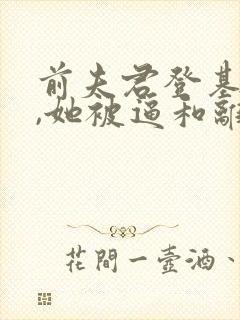 前夫君登基
,她被逼和離
花間一壺酒、